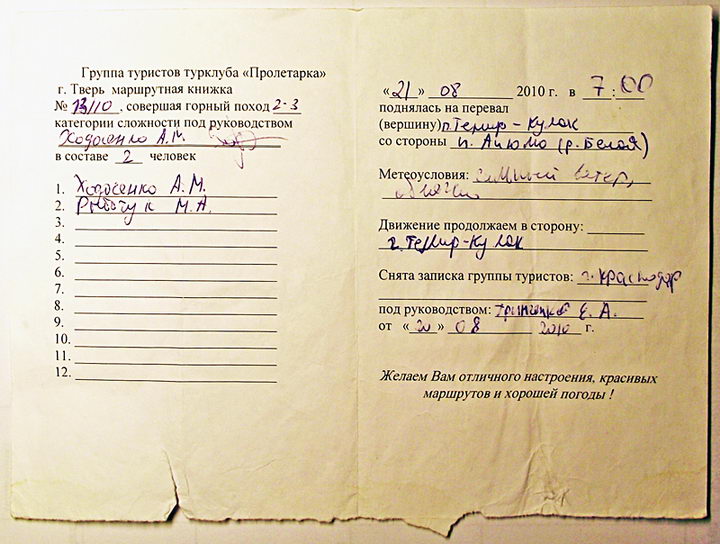 Группа туристов турклуба «Пролетарка»
г. Тверь маршрутная книжка
№ 13/10 , совершая горный поход 2-3
категории сложности под руководством
Ходосенко А.М.
в составе 2 человек
1. Ходосенко А.М.
2. М.А.
3.
4.
5.
6.
7.
8.
9.
10.
11.
12.
«21» 08 2010 г. в 7:00
поднялась на перевал
(вершину) п.Темир-Кулак
со стороны п. Аюмо (р. Белая)
Метеоусловия: сильный ветер,
Движение продолжаем в сторону:
г. Темир-Кулак
Снята записка группы туристов: г. Краснодар
под руководством: Е. А.
от «20» 08 2010 г.
Желаем Вам отличного настроения, красивых
маршрутов и хорошей погоды !